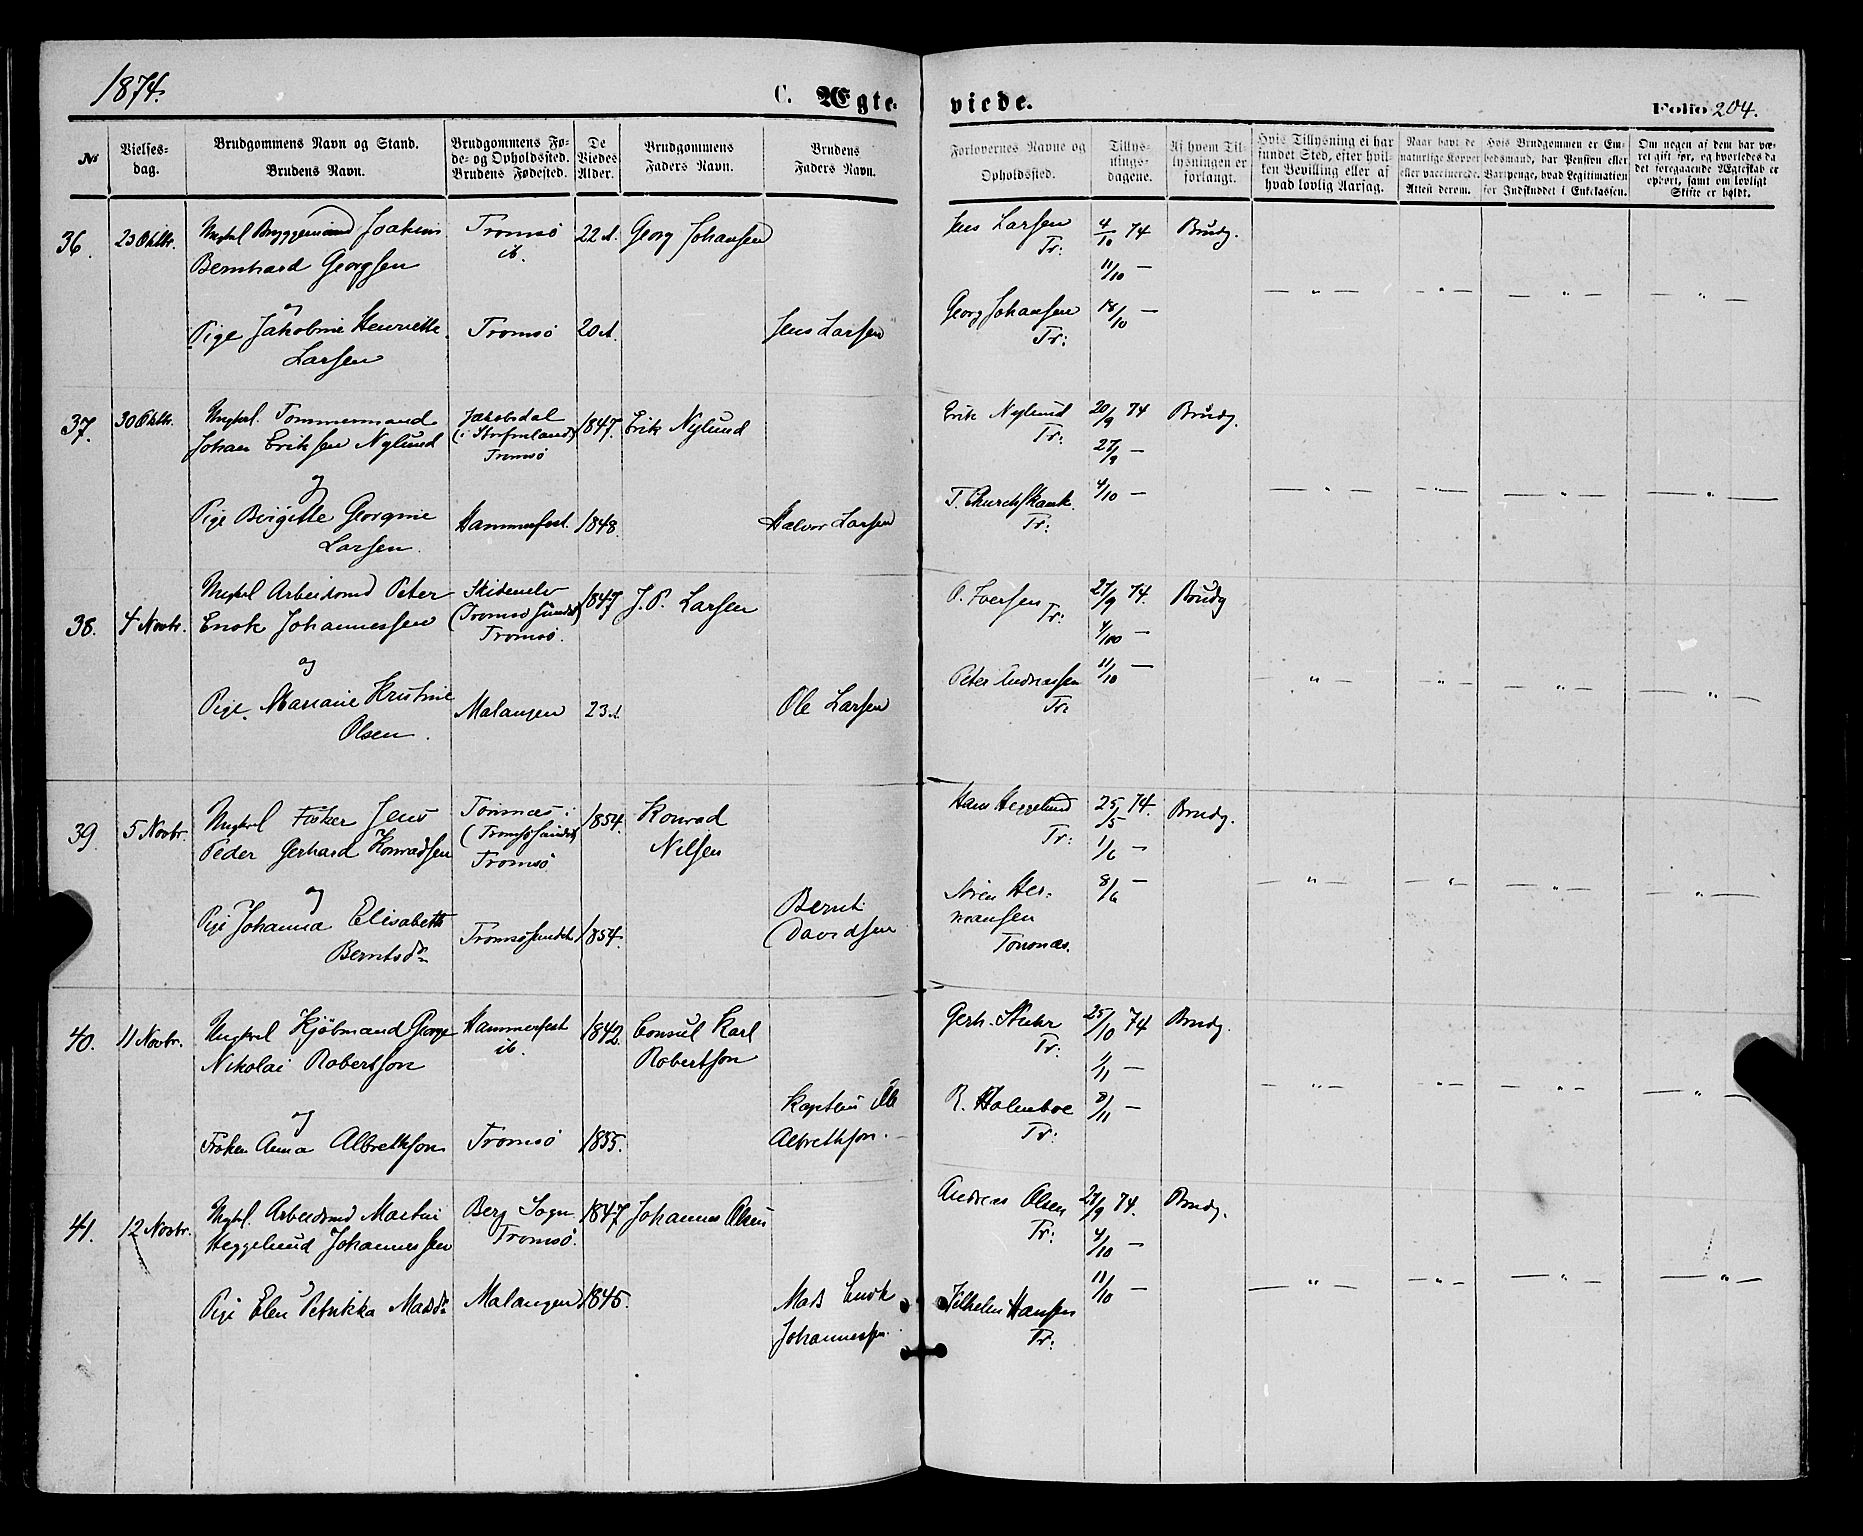 1874.
C. Ægte-
viede.
Folio 204.
No
Vielses-
dag.
Brudgommens Navn og Stand.
Brudens Navn.
Brudgommens Fø-
de- og Opholdssted.
Brudens Fødested.
De
Viedes
Alder.
Brudgommens
Faders Navn.
Brudens
Faders Navn.
Forlovernes Navne og
Opholdssted.
Tillys-
nings-
dagene.
Af hvem Til-
lysningen er
forlangt.
Hvis Tillysning ei har
fundet Sted, efter hvil-
ken Bevilling eller af
hvad lovlig Aarsag.
Naar havt de
naturlige Kopper
eller vaccinerede.
Attest derom.
Hvis Brudgommen er Em-
bedsmand, har Pension eller
Vartpenge, hvad Legitimation
for Indskuddet i Enkekassen.
Om nogen af dem har væ-
ret gift før, og hvorledes da
det foregaaende Ægteskab er
ophørt, samt om lovligt
Skifte er holdt.
36.
23 Oktbr.
Ungkel Bryggemand Joakim
Bernhard Georgsen
og
Pige Jakobine Henriette
Larsen
Tromsö
ib.
Tromsö
22 A.
20 A.
Georg Johansen
Jens Larsen
Jens Larsen
Tr:
Georg Johansen
Tr:
4/10 74
11/10 —
18/10 —
Brudg.
37.
30 Oktbr.
Ungkel. Tømmermand
Johan Eriksen Nylund
og
Pige Birgitte Georgine
Larsen.
Jakobsdal
Tromsö
Hammerfest.
1847.
1848.
Erik Nylund
Halvor Larsen
Erik Nylund
Tr:
Tr:
20/9 74
27/9 —
4/10 —
Brudg.
38.
4 Novbr.
Ungkel Arbeidsmd Peter
Enok Johannessen
og
Pige Mariane Kristine
Olsen.
(Tromsösundet)
Tromsö.
Malangen
1847
23 A.
J. P. Larsen
Ole Larsen
P. Iversen
Tr:
Peter Andreassen
Tr:
27/9 74.
4/10 —
11/10 —
Brudg
39
5 Novbr.
Ungkel Fisker Jens
Peder Gerhard Konradsen
og
Pige Johanna Elisabeth
Berntsdr
(Tromsösundet)
Tromsö
Tromsösundet
1854.
1854.
Konrad
Nilsen
Bernt
Davidsen
Hans Heggelund
Tr:
Sören Her-
mansen
25/5 74.
1/6 —
8/6 —
Brudg.
40.
11 Novbr.
Ungkel Kjöbmand George
Nikolai Robertson
og
Fröken Anna Albrethson
Hammerfest
ib.
Tromsö
1842.
1855.
Consul Karl
Robertson
Kaptein
Albrethson.
Gerh. Stuhr
Tr:
R. Holmboe
Tr:
25/10 74
1/11 —
8/11 —
Brudg.
41.
12 Novbr.
Ungkl. Arbeidsmd Martin
Heggelund Johannessen
Pige Elen Petrikka Madsdr
Berg Sogn
Tromsö.
Malangen
1847
1845.
Johannes Olsen
Mads Enok
Johannessen.
Andreas Olsen
Tr:
Vilhelm Hansen
Tr:
27/9 74.
4/10 —
11/10 —
Brudg.